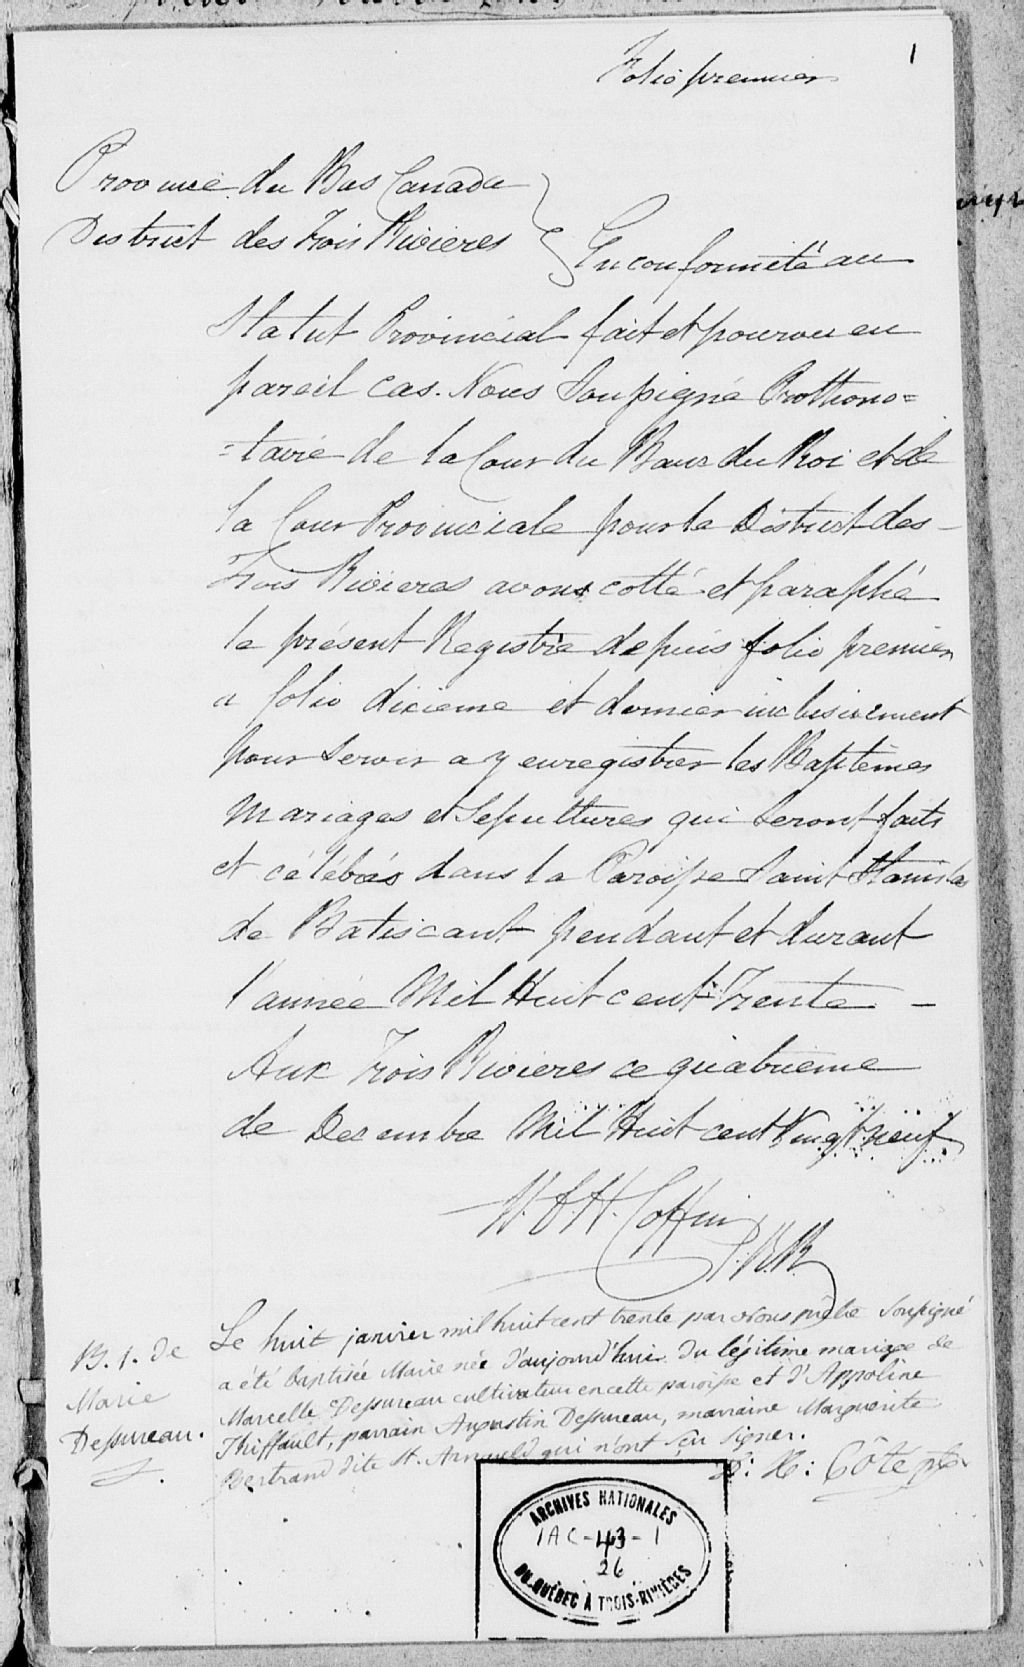 1
Folio premier
Province du Bas Canada
District des Trois Rivieres
En conformité au
Statut Provincial fait et pourvu en
pareil cas. Nous Soussigné Prothono=
=taire de la Cour du Banc du Roi et de
la Cour Provinciale pour le District des
Trois Rivieres avons cotté et paraphé
le présent Registre depuis folio premier
a folio dixieme et dernier inclusivement
pour servir a y enregistrer les Baptêmes
Mariages et Sepultures qui seront faits
et célébrés dans la Paroisse Saint Stanislas
de Batiscant pendant et durant
l'année Mil Huit cent Trente -
Aux Trois Rivieres ce quatrieme
de Decembre Mil Huit cent Vingt neuf
W.F.H. Coffin
P.B.R.
B. 1. de
Marie
Dessureau.
Le huit janvier mil huit cent trente par Nous prêtre Soussigné
a été baptisée Marie née d'aujourd'hui du légitime mariage de
Marcelle Dessureau cultivateur en cette paroisse et d'Appoline
Thiffault, parrain Augustin Dessureau, marraine Marguerite
Bertrand dite St. Arnauld qui n'ont sçu signer.
Côté ptre
ARCHIVES NATIONALES
1AC-43-1
26
DU QUÉBEC À TROIS-RIVIÈRES